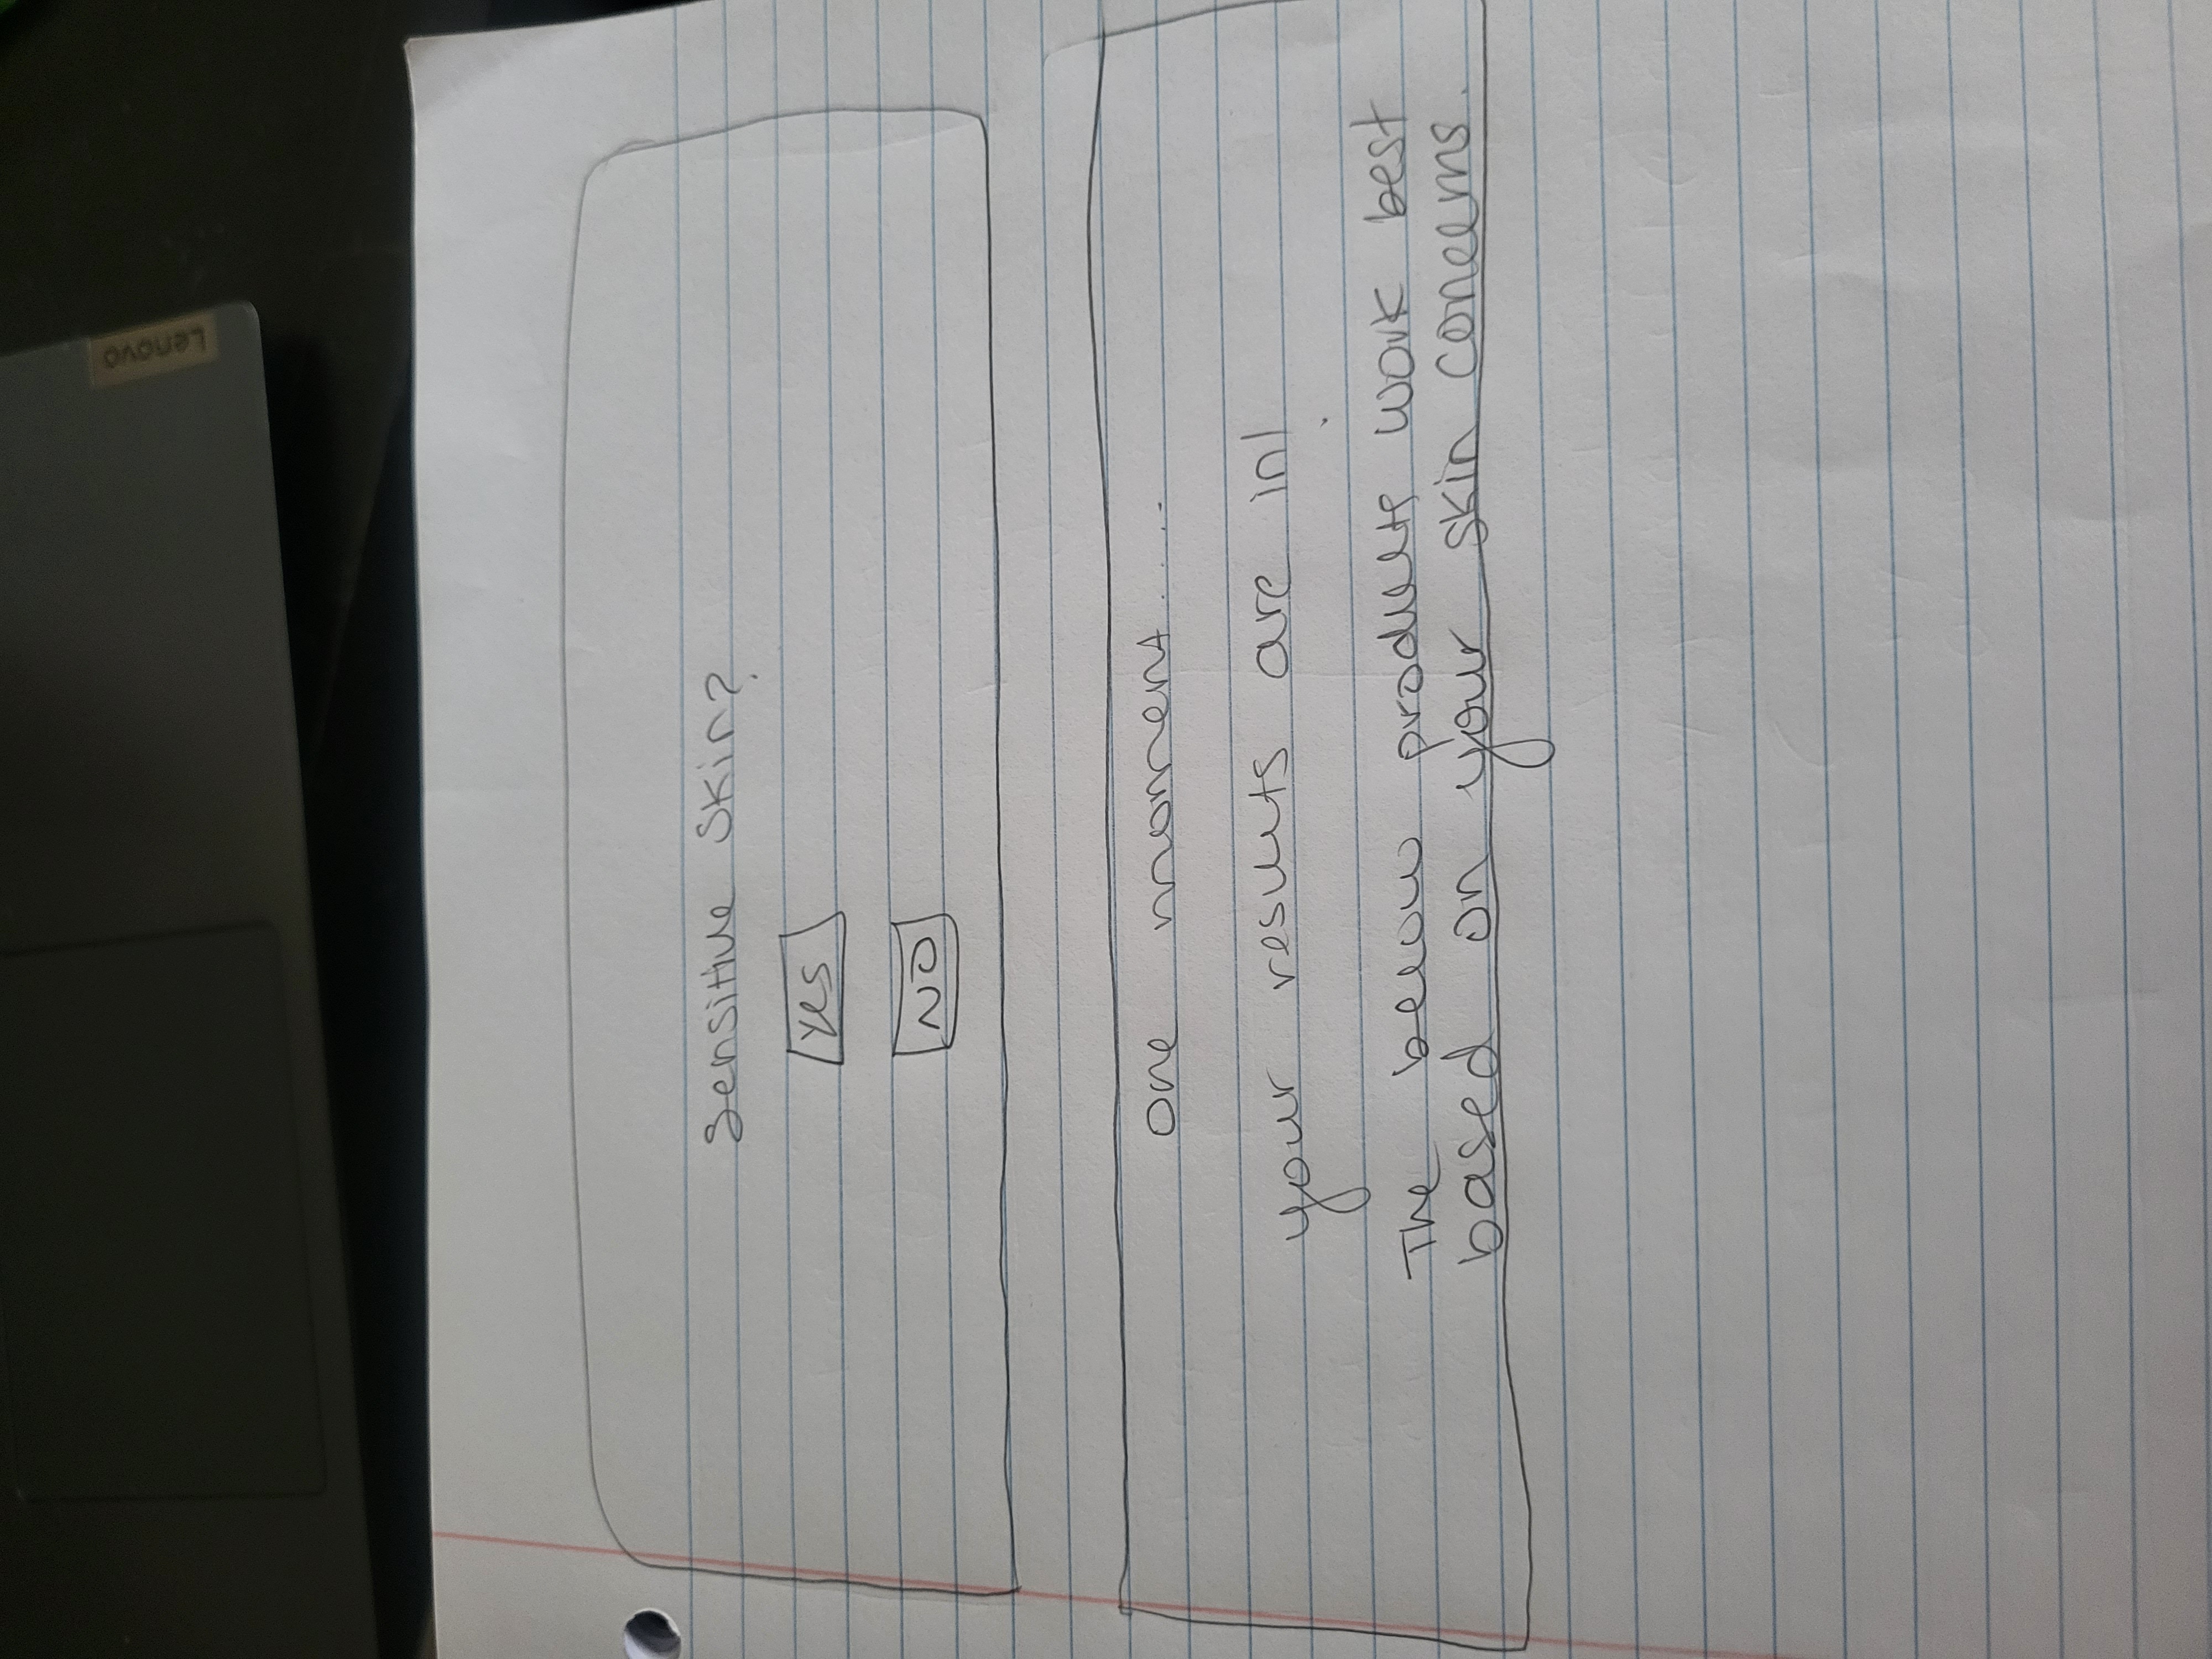 Lenovo
Sensitive Skin?
Yes
NO
One moment.....
your results are in!
The below products work best
based on your skin concerns.